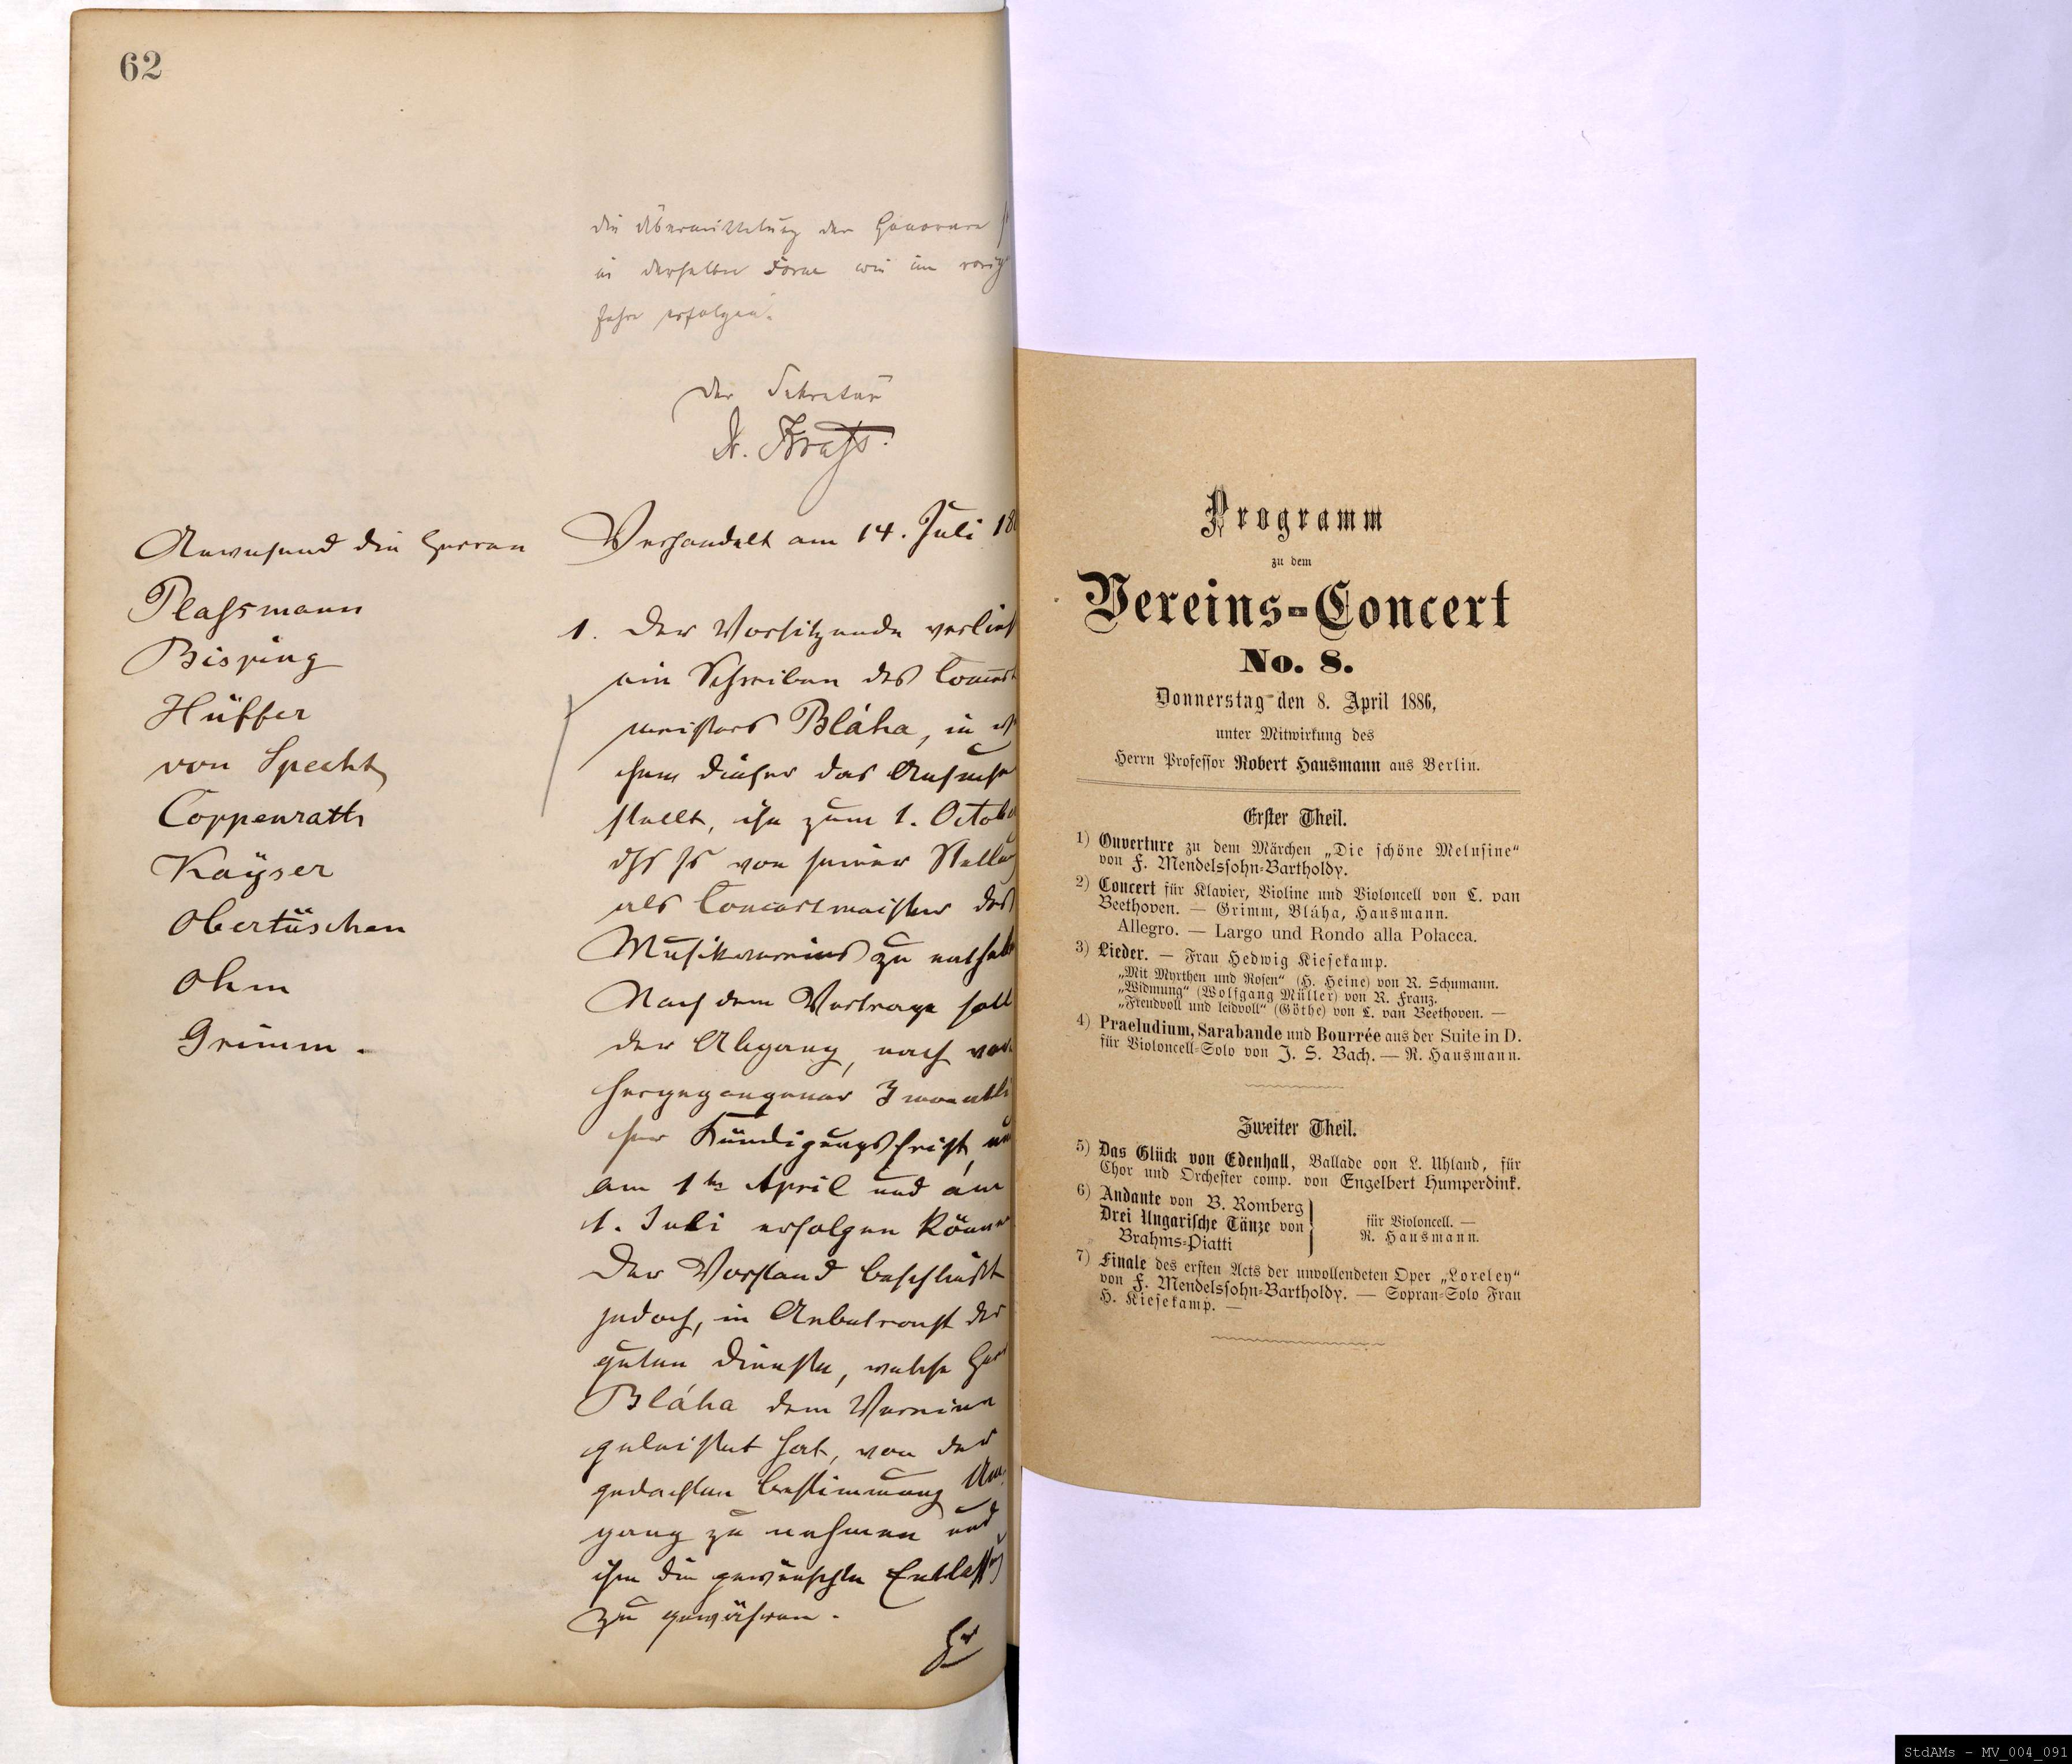 62
die Übermittelung der Honorare
in derselben Form wie im vorig
Jahre erfolgen.
Der Sekretär
Dr. Krass.
Anwesend die Herren
Plassmann
Bisping
Hüffer
von Specht
Coppenrath
Kayser
Obertüschen
Ohm
Grimm.
Verhandelt am 14. Juli 18
1. Der Vorsitzende verliest
ein Schreiben des Concert
meisters Bláha, in wel
chem dieser das Ansuchen
stellt, ihn zum 1. October
dss Js von seiner Stellung
als Concertmeister des
Musikvereins zu entheben
Nach dem Vertrage soll
der Abgang, nach vor
hergegangener 3 monatli
cher Kündigungsfrist, nur
am 1ten April und am
1. Juli erfolgen können
Der Vorstand beschließt
jedoch, in Anbetracht der
guten Dienste, welche Herr
Bláha dem Vereine
geleistet hat, von der
gedachten Bestimmung Um
gang zu nehmen und
ihm die gewünschte Entlassung
zu gewähren.
Programm
zu dem
Vereins-Concert
No. 8.
Donnerstag den 8. April 1886,
unter Mitwirkung des
Herrn Professor Robert Hausmann aus Berlin.
Erster Theil.
1) Ouverture zu dem Märchen „Die schöne Melusine“
von F. Mendelssohn-Bartholdy.
2) Concert für Klavier, Violine und Violoncell von L. van
Beethoven. — Grimm, Bláha, Hausmann.
Allegro. — Largo und Rondo alla Polacca.
3) Lieder. — Frau Hedwig Kiesekamp.
„Mit Myrthen und Rosen“ (H. Heine) von R. Schumann.
„Widmung“ (Wolfgang Müller) von R. Franz.
„Freudvoll und leidvoll“ (Göthe) von L. van Beethoven. —
4) Praeludium, Sarabande und Bourrée aus der Suite in D.
für Violoncell-Solo von J. S. Bach. — R. Hausmann.
Zweiter Theil.
5) Das Glück von Edenhall, Ballade von L. Uhland, für
Chor und Orchester comp. von Engelbert Humperdink.
6) Andante von B. Romberg
Drei Ungarische Tänze von
Brahms-Piatti
für Violoncell. —
R. Hausmann.
7) Finale des ersten Acts der unvollendeten Oper „Loreley“
von F. Mendelssohn-Bartholdy. — Sopran-Solo Frau
H. Kiesekamp. —
StdAMs - MV_004_091